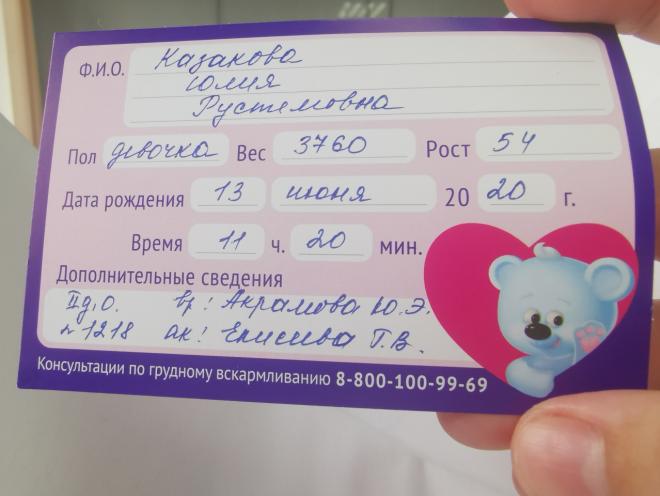 Ф.И.О. Казакова
Юлия
Рустемовна
Пол девочка Вес 3760 Рост 54
Дата рождения 13 июня 20 20 г.
Время 11 ч. 20 мин.
Дополнительные сведения
II д.о. вр: Акрамова Ю.Э.
№1218 ак: Елисеева Г.В.
Консультации по грудному вскармливанию 8-800-100-99-69